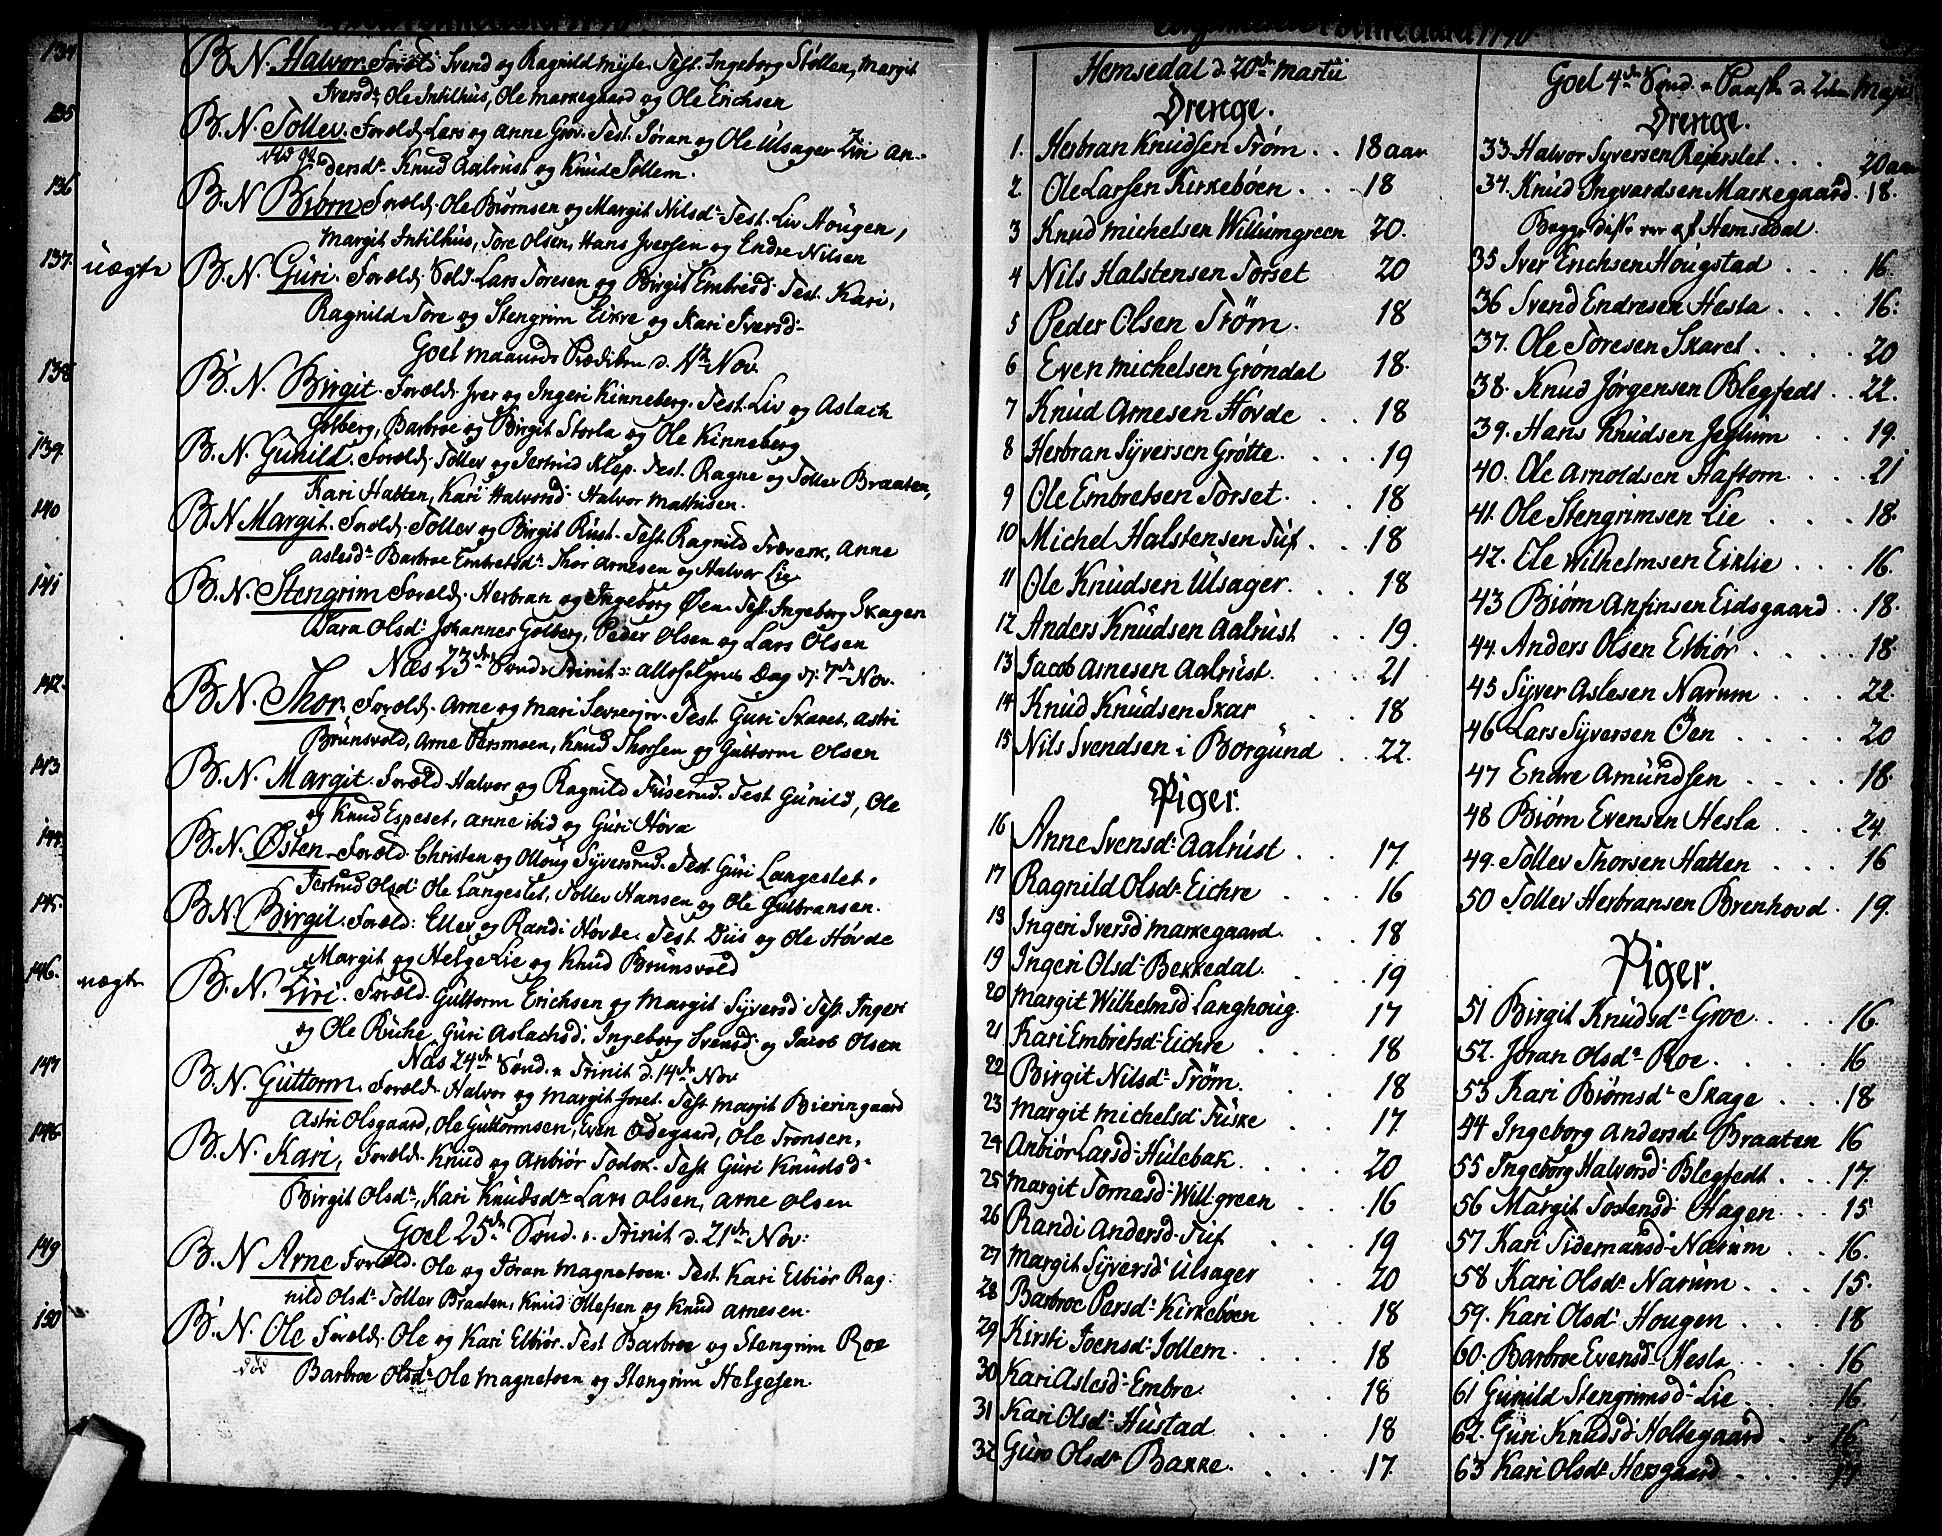 134 B. N. Halvor. Foræld: Svend og Ragnild Myte. Test. Ingeborg Støllen, Margit
Iversdr, Ole Intilhus, Ole Markegaard og Ole Erichsen
135 B. N. Tollev. Foræld. Lars og Anne Grov. Test. Jøran og Ole Ulsager Liv An-
dersdr Knud Aalrust og Knud Tollem.
136 B. N Biørn Foræld. Ole Biørnsen og Margit Nilsdr Test. Liv Hougen,
Margit Intilhus, Tore Olsen, Hans Iversen og Endre Nilsen
137. uægte B. N. Guri. Foræld. Sold. Lars Toresen og Birgit Embresd. Test. Kari,
Ragnild Tore og Stengrim Eikre og Kari Iversd.
Goel d. 1ste Nov.
138 B. N. Birgit. Foræld. Iver og Ingeri Kinneberg. Test. Liv og Aslach
Golberg, Barbroe og Birgit Storla og Ole Kinneberg
139. B. N. Gunild. Foræld. Tollev og Jertrud Klep. Test. Ragne og Tollev Braaten,
Kari Hatten, Kari Halvorsd. Halvor Mathisen.
140 B. N Margit. Foræld. Tollev og Birgit Rust. Test. Ragnild Træverk, Anne
Aslesdr Barbroe Embretsdr Thor Arnesen og Halvor Lie
141 B. N. Stengrim Foræld. Herbran og Ingeborg Øen. Test. Ingeborg Skagen
Olsd. Johannes Golberg, Peder Olsen og Lars Olsen
Næs 23de Sønd. Trinit: Dag d. 7de Nov.
142. B. N. Thor. Foræld. Arne og Mari Test. Guri Skaret, Astri
Brunsvold, Arne Persmoen, Knud Thorsen og Guttorm Olsen
143 B. N. Margit. Foræld Halvor og Ragnild Fuserud. Test. Gunild, Ole
og Knud Espeset, Anne ibid og Guri Høva
144. B. N. Østen. Foræld. Christen og Ollong Syversrud. Test Guri Langeslet.
Jertrud Olsdr Ole Langeslet, Tollev Hansen og Ole Gulbransen.
145. B. N. Birgit. Foræld: Ellev og Randi Høvde. Test Diis og Ole Høvde
Margit og Helge Lie og Knud Brunsvold
146. uægte B. N. Liri. Foræld. Guttorm Erichsen og Margit Syversd. Test. Inger
og Ole Ruche, Guri Aslachsd. Ingeborg Svensd. og Jacob Olsen
Næs 24de Sønd. Trinit d. 14de Nov
147 B. N. Guttorm. Foræld. Halvor og Margit Joret. Test Margit Bieringaard
Astri Olsgaard, Ole Guttormsen, Even Ødegaard, Ole Tronsen.
148 B. N. Kari, Foræld. Knud og Anbiør Todok. Test Guri Knudsd.
Birgit Olsdr, Kari Knudsdr Lars Olsen, Arne Olsen
Goel 25de Sønd. Trinit d. 21de Nov:
149 B. N Arne Foræld. Ole og Jøran Magnetoen. Test. Kari Elbiør Rag:
nild Olsdr Tollev Braaten, Knud Ollefsen og Knud Arnesen.
150 B. N. Ole Foræld. Ole og Kari Elbiør. Test Barbroe og Stengrim Roe
død Barbroe Olsdr Ole Magnetoen og Stengrim Helgesen.
Hemsedal d. 20de Martii
Drenge.
1. Herbran Knudsen Trøm . . 18 aar
2 Ole Larsen Kirkebøen . . . 18
3 Knud Michelsen Williumgreen 20.
4 Nils Halstensen Torset 20
5 Peder Olsen Trøm. 18
6 Even Michelsen Grøndal 18.
7 Knud Arnesen Høvde . . 18
8 Herbran Syversen Grøtte. . . . 19
9 Ole Embretsen Torset. . . 18
10 Michel Halstensen Tuf. . . 18
11 Ole Knudsen Ulsager. . . 18
12 Anders Knudsen Aalrust . . 19.
13 Jacob Arnesen Aalrust. . . 21
14 Knud Knudsen Skar . . 18
15 Nils Svendsen i Borgund . . 22.
Piger.
16 Anne Svensd. Aalrust . . 17.
17 Ragnild Olsdr Eichre . . . 16
18 Ingeri Iversd Markegaard. . . 18
19 Ingeri Olsdr Bekkedal. . . 19
20 Margit Wilhelmsd Langhoug. . 17
21 Kari Embretsd. Eichre . . . 18
22 Birgit Nilsdr Trøm. . . . 18
23 Margit Michelsd Fuske . . 17.
24 Anbiør Larsd. Hulebak. . . . 20
25 Margit Tomasd. Willgreen . . 16
26 Randi Andersd. Tuf . . . 19
27 Margit Syversd. Ulsager . . 20
28 Barbroe Persd. Kirkebøen . . 18
29 Kirsti Joensd. Tollem. . . . 18
30 Kari Aslesd. Embre. . . 18
31 Kari Olsdr Hustad . . . 18
32 Guro Olsdr Bakke. . . . 17.
Goel 4de Sønd. Paaske d. 2den Maji
Drenge.
33. Halvor Syversen Rejerslet. . . . 20 aar
34. Knud Ingvardsen Markegaard. 18.
Begge af Hemsedal
35 Iver Erichsen Hougstad . . . 16.
36 Svend Endresen Hesla . . . 16.
37. Ole Toresen Skaret. . . . . 20
38. Knud Jørgensen Blegfedt . . 22.
39. Hans Knudsen Jeglum . . 19.
40. Ole Arnoldsen Haftorn. . . . 21
41. Ole Stengrimsen Lie . . . . 18.
42. Ele Wilhelmsen Eiklie . . . 16.
43 Biørn Anfinsen Eidsgaard . . 18.
44. Anders Olsen Elbiør . . . . 18.
45 Syver Aslesen Narum . . . 22.
46 Lars Syversen Øen . . . . . 20
47 Endre Amundsen . . . . 18.
48 Biørn Evensen Hesla . . . . 24.
49. Tollev Thorsen Hatten . . . 16
50 Tollev Herbransen Brenhovd . 19.
Piger.
51 Birgit Knudsdr Groe . . . 16.
52. Jøran Olsdr Roe. . . . . 16
53 Kari Biørnsdr Skage . . . . 18
54 Ingeborg Andersdr Braaten 16
55 Ingeborg Halvorsd. Blegfedt . . 17.
56 Margit Tostensd. Hagen . . . 15
57 Kari Tidemansd. Narum . . 16.
58 Kari Olsdr Narum . . . . 15.
59. Kari Olsdr Hougen . . . . 18
60. Barbroe Evensdr Hesla . . . . 16
61 Gunild Stengrimsdr Lie . . . 16.
62. Guri Knudsd. Holtegaard . . 16
63 Kari Olsdr Hersgaard . . . 17